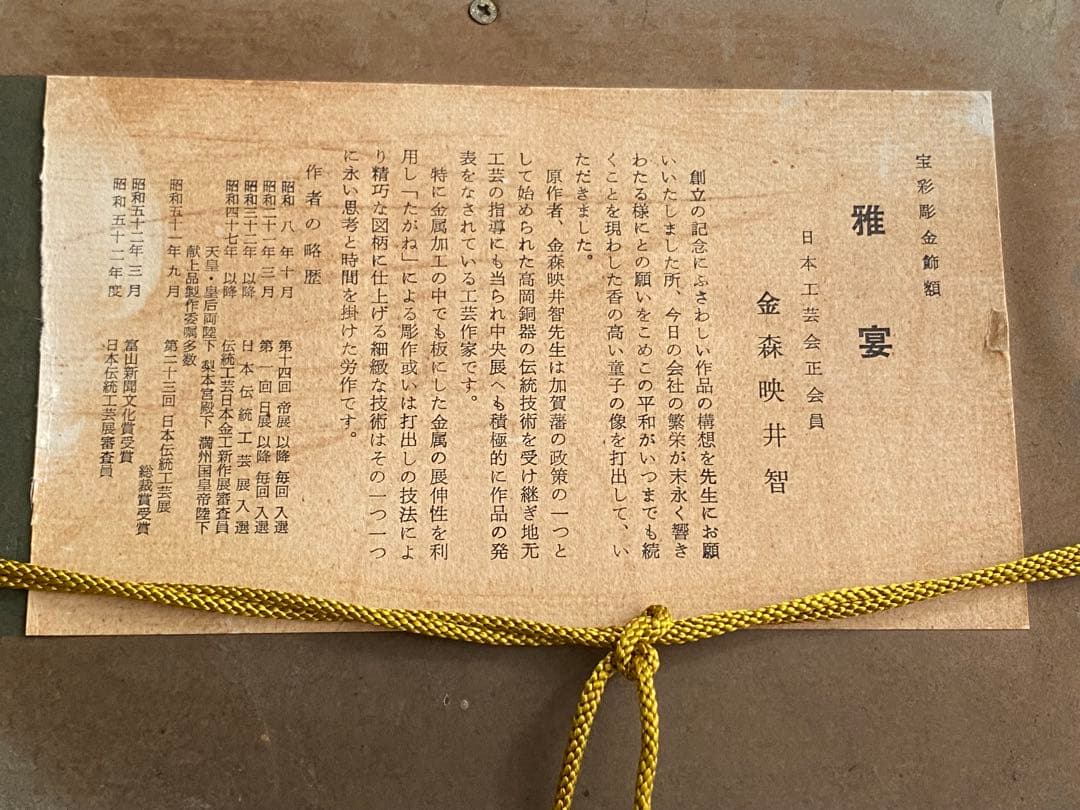 宝彩彫金飾額
雅宴
日本工芸会正会員
金森映井智
創立の記念にふさわしい作品の構想を先生にお願
いいたしました所、今日の会社の繁栄が末永く響き
わたる様にとの願いをこめこの平和がいつまでも続
くことを現わした香の高い童子の像を打出して、い
ただきました。
原作者、金森映井智先生は加賀藩の政策の一つと
して始められた高岡銅器の伝統技術を受け継ぎ地元
工芸の指導にも当られ中央展へも積極的に作品の発
表をなされている工芸作家です。
特に金属加工の中でも板にした金属の展伸性を利
用し「たがね」による彫作或いは打出しの技法によ
り精巧な図柄に仕上げる細緻な技術はその一つ一つ
に永い思考と時間を掛けた労作です。
作者の略歴
昭和八年十月 第十四回帝展以降毎回入選
昭和二十一年三月 第一回日展以降毎回入選
昭和三十二年以降 日本伝統工芸展入選
昭和四十七年以降 伝統工芸日本金工新作展審査員
天皇・皇后両陛下 梨本宮殿下 満州国皇帝陛下
献上品製作委嘱多数
昭和五十一年九月 第二十三回日本伝統工芸展
総裁賞受賞
昭和五十二年三月 富山新聞文化賞受賞
昭和五十二年度 日本伝統工芸展審査員